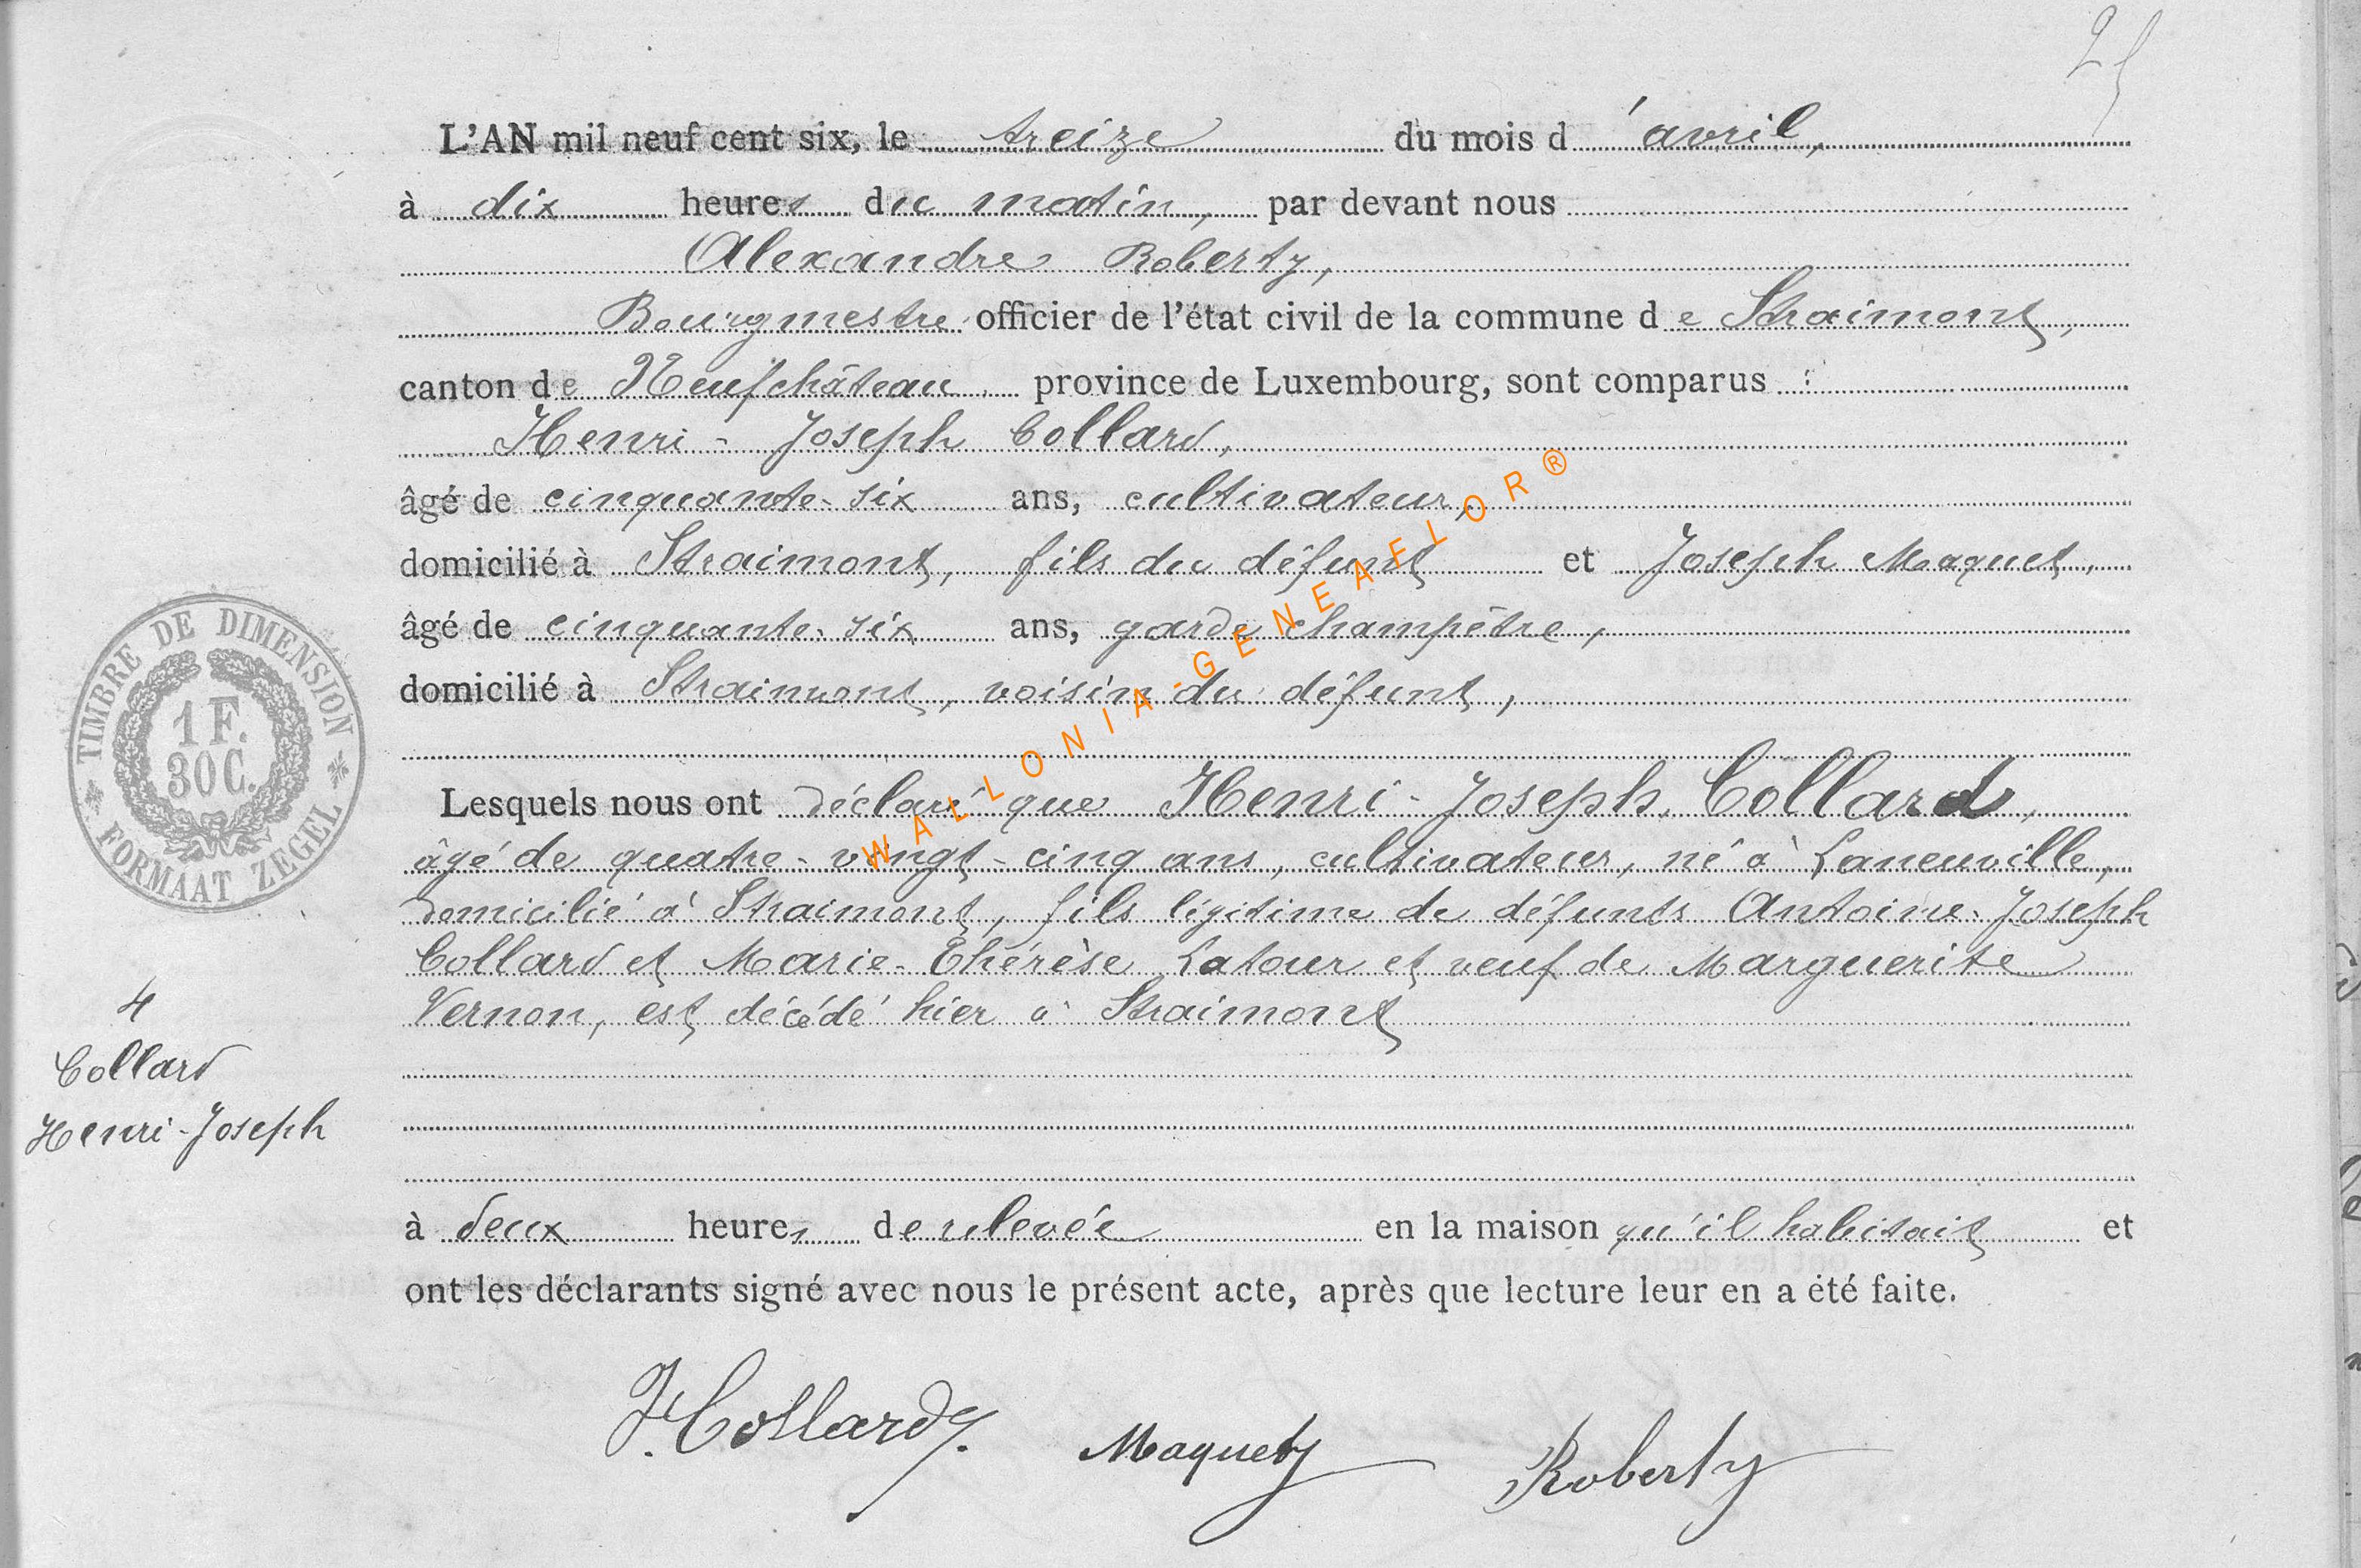 25
L'AN mil neuf cent six, le treize du mois d'avril,
à dix heures du matin, par devant nous
Alexandre Roberty,
Bourgmestre officier de l'état civil de la commune de Straimont,
canton de Neufchâteau, province de Luxembourg, sont comparus :
Henri-Joseph Collard,
âgé de cinquante-six ans, cultivateur,
domicilié à Straimont, fils du défunt et Joseph Maquet,
âgé de cinquante-six ans, garde champêtre,
domicilié à Straimont, voisin du défunt,
Lesquels nous ont déclaré que Henri-Joseph Collard,
âgé de quatre-vingt-cinq ans, cultivateur, né à Laneuville,
domicilié à Straimont, fils légitime de défunts Antoine-Joseph
Collard et Marie-Thérèse Latour et veuf de Marguerite
Vernon, est décédé hier à Straimont
à deux heures de relevée en la maison qu'il habitait et
ont les déclarants signé avec nous le présent acte, après que lecture leur en a été faite.
TIMBRE DE DIMENSION
1 F.
30 C.
FORMAAT ZEGEL
4
Collard
Henri-Joseph
H. Collard J.
Maquet J
Roberty
WALLONIA-GENEAFLOR®